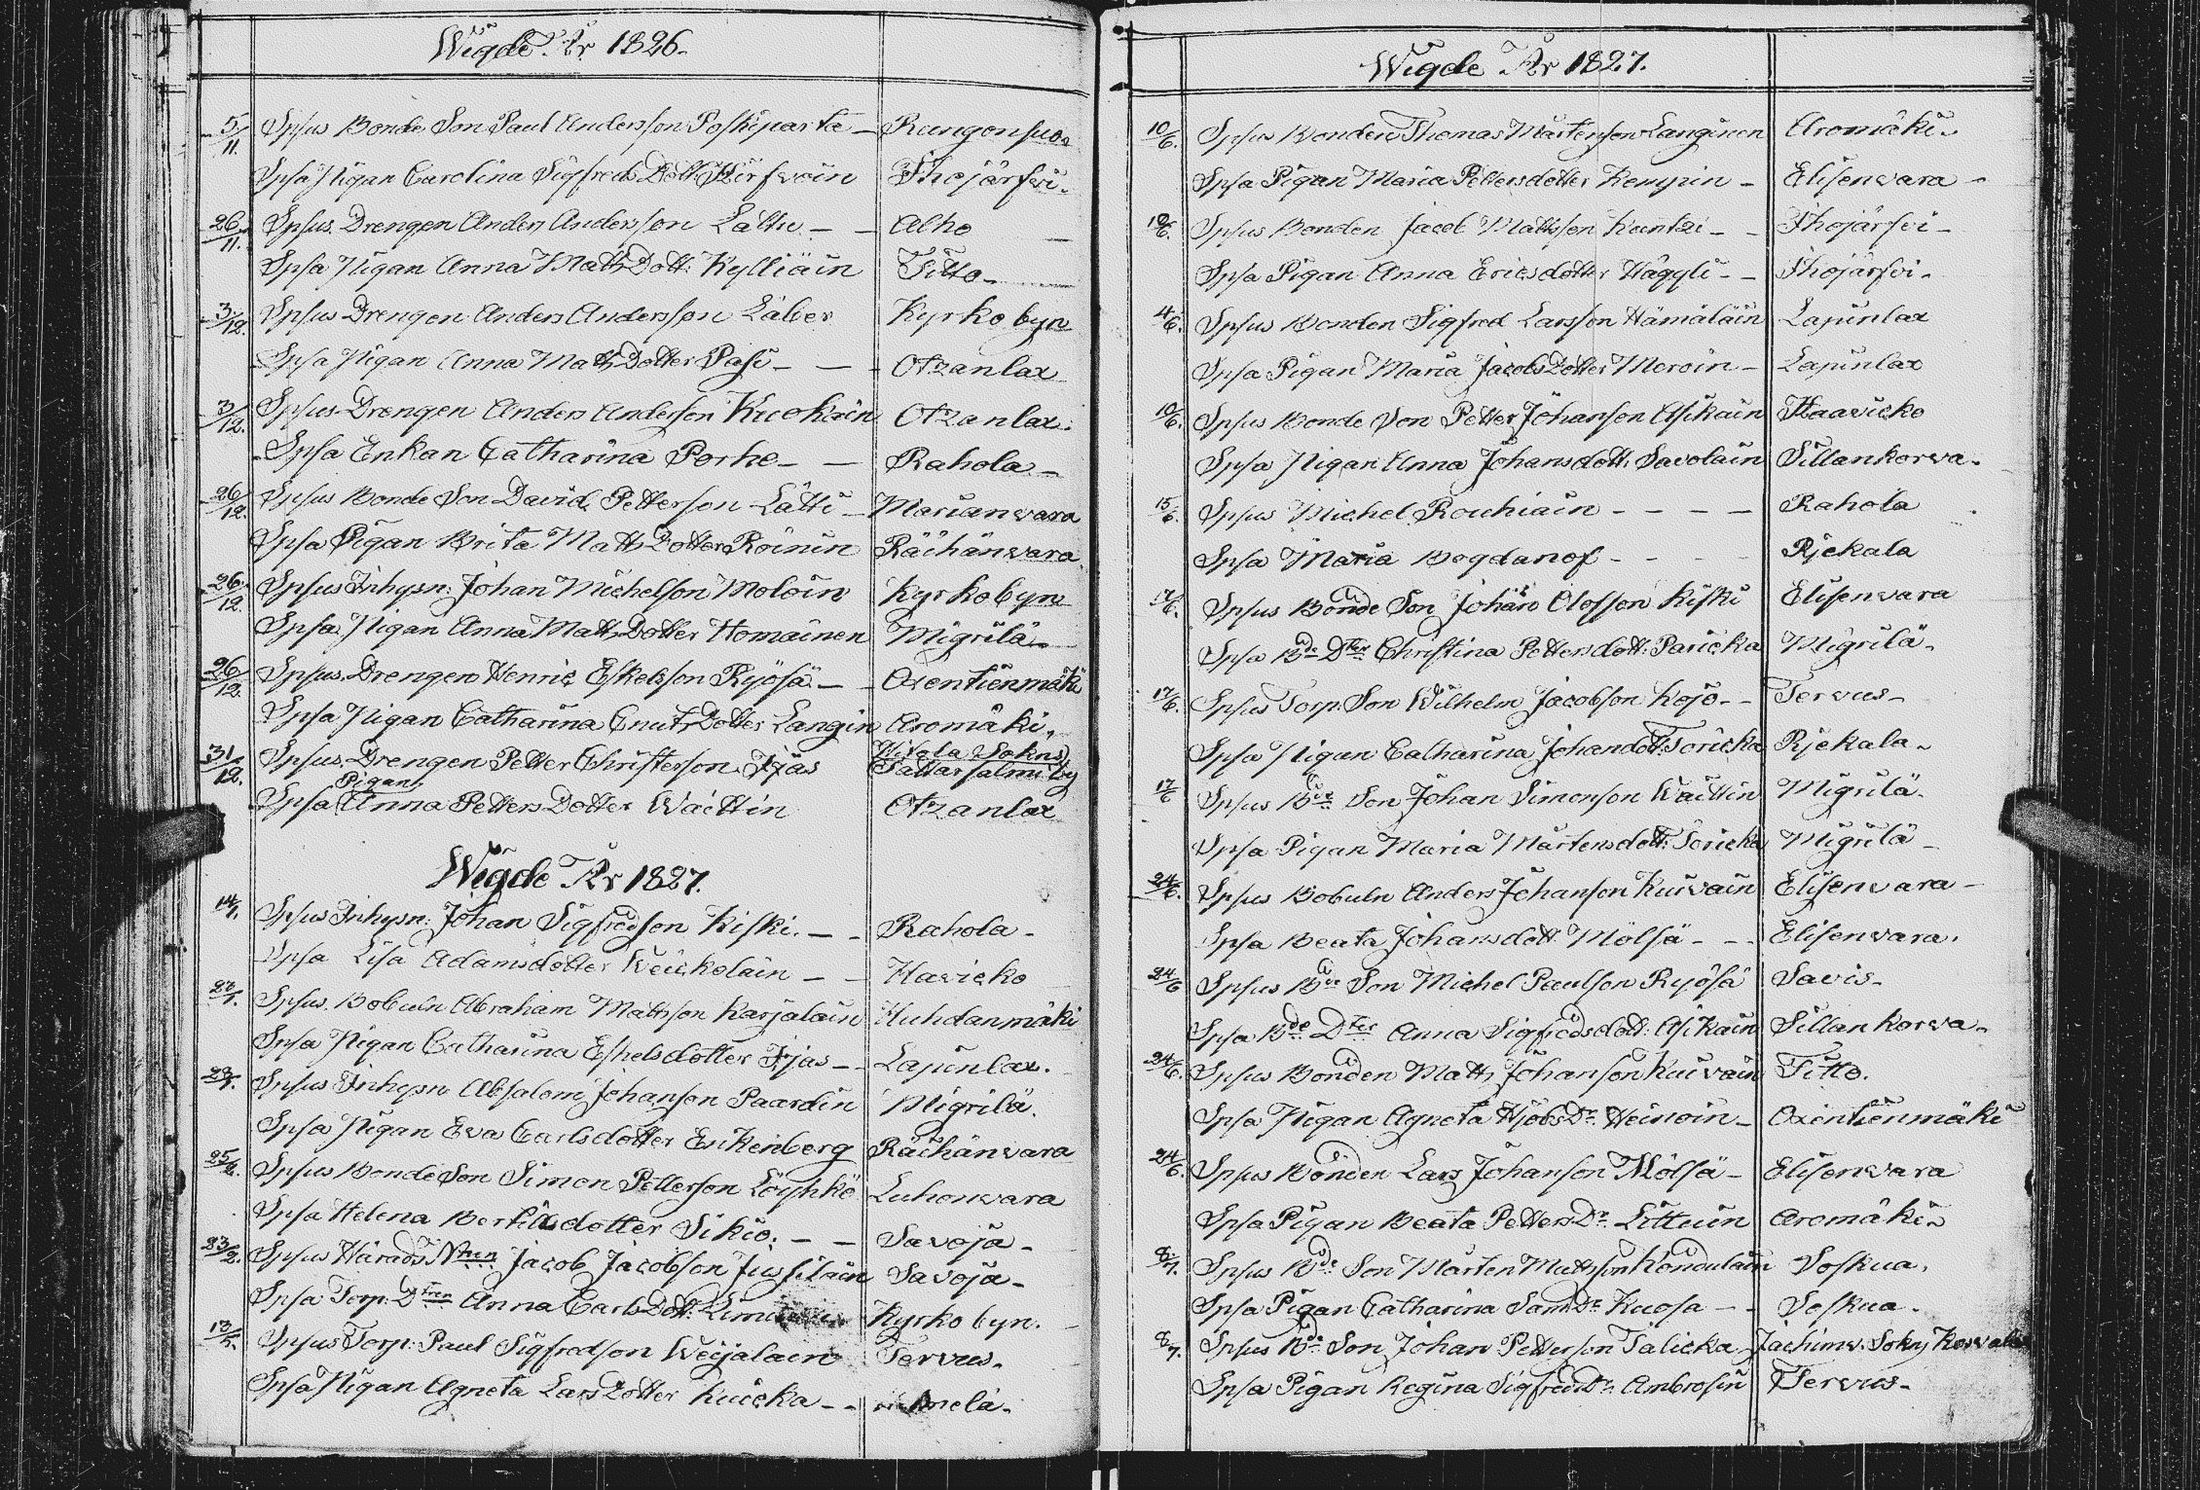 Wigde År 1826.
5/11. Spsus Bonde Son Paul Andersson Poskiparta - Rungonsuo.
Spsa Pigan Carolina Sigfreds Dott: Hirfvoin Ihojärfvi.
26/11. Spsus Drengen Anders Andersson Lattu - - Alho
Spsa Pigan Anna Matts Dott: Kylliäin Tiitto -
3/12. Spsus Drengen Anders Andersson Kyrkobyn
Spsa Pigan Anna Matts Dotter Pasi - - - Otzanlax
3/12. Spsus Drengen Anders Anderson Kuokain Otzanlax.
Spsa Enkan Catharina Porhe - - Rahola -
26/12. Spsus Bonde Son David Petterson Lätti - Marianvara
Spsa Pigan Brita Matts Dotter Roinin Räihänvara
26/12. Spsus Inhysn: Johan Michelson Moloin Kyrkobyn
Spsa Pigan Anna Matts Dotter Homainen Migrilä -
26/12. Spsus Drengen Henric Eskelsson Ryösä - - Oxentienmäki
Spsa Pigan Catharina Cnuts Dotter Langin Aromäki.
31/12. Spsus Drengen Petter Christerson Ijäs Hitola Sokns Tattarsalmi by
Spsa Pigan Anna Petters Dotter Wäittin Otzanlax
Wigde År 1827.
14/1. Spsus Inhysn: Johan Sigfredson Kiski. - - Rahola -
Spsa Lisa Adamsdotter Weickolain - - Havicko
27/1. Spsus Bobuln Abraham Mattson Karjalain Huhdanmäki
Spsa Pigan Catharina Eskelsdotter Ijas - - Lapinlax.
23/1. Spsus Inhysn Absalom Johanson Paardin Migrilä.
Spsa Pigan Eva Carlsdotter Enkenberg Räihänvara
25/2. Spsus Bonde Son Simon Petterson Löyhkö Luhonvara
Spsa Helena Bertilsdotter Sikiö. - - Savoja -
23/2. Spsus Härads Jacob Jacobson Jussilain Savoja -
Spsa Torp: Dtren Anna Carls Dott: Kyrkobyn.
13/5. Spsus Torp: Paul Sigfredson Weijalain Tervus.
Spsa Pigan Agneta Lars Dotter Kuicka - -
Wigde År 1827.
10/6. Spsus Bonden Thomas Mårtenson Langinen Aromäki.
Spsa Pigan Maria Pettersdotter Kempin - Elisenvara -
10/6. Spsus Bonden Jacob Mattsson Kuntzi - - Ihojärfvi -
Spsa Pigan Anna Ericsdotter Häggli - - Ihojärfvi.
4/6. Spsus Bonden Sigfred Larsson Hämäläin Lapinlax
Spsa Pigan Maria Jacobs Dotter Meroin - Lapinlax
10/6. Spsus Bonde Son Petter Johanson Asikain Haavicko
Spsa Pigan Anna Johansdott: Savolain Sillankorva.
15/6. Spsus Michel Rouhiain - - - - Rahola
Spsa Maria Bogdanof - - - - Rjekala
17/6. Spsus Bonde Son Johan Olofson Kiski Elisenvara
Spsa Bde Dtren Christina Pettersdott: Paricka Migrilä.
17/6. Spsus Torp: Son Wilhelm Jacobson Kojo - - Tervus -
Spsa Pigan Catharina Johansdott: Toricka Rjekala.
17/6 Spsus Bde Son Johan Simonson Waittin Migrilä.
Spsa Pigan Maria Mårtensdott: Toricka Migrilä -
24/6. Spsus Bobuln Anders Johanson Kuivain Elisenvara -
Spsa Beata Johansdott: Mölsä - - - Elisenvara.
24/6 Spsus Bde Son Michel Paulson Ryösä Savis -
Spsa Bde Dter Anna Sigfredsdott: Asikain Sillankorva -
24/6. Spsus Bonden Matts Johanson Kuivain Tiitto.
Spsa Pigan Agneta Hjobs Dr Heinoin - Oxentienmäki
24/6. Spsus Bonden Lars Johanson Mölsä - Elisenvara
Spsa Pigan Beata Petters Dr Littuin Aromäki
8/7. Spsus Bde Son Mårten Mattson Kondulain Soskua.
Spsa Pigan Catharina Sams Dr Kuosa - - Soskua.
8/7. Spsus Bde Son Johan Petterson Talicka Jachimv. Sokn
Spsa Pigan Regina Sigfreds Dr Ambrosin Tervus -